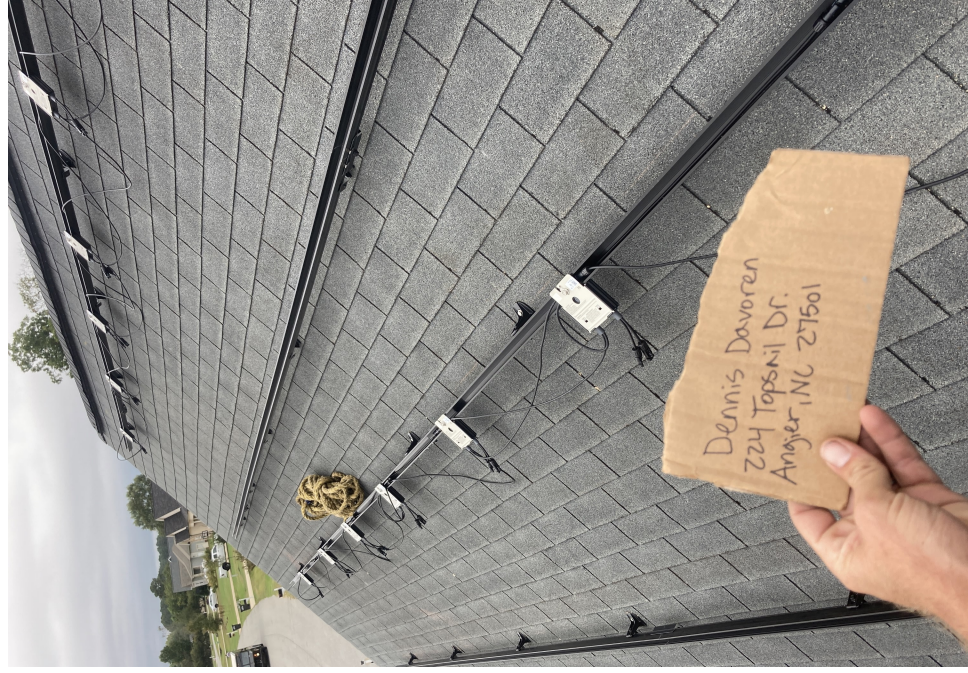 Dennis Davoren
224 Topsail Dr.
Angier, NC 27501